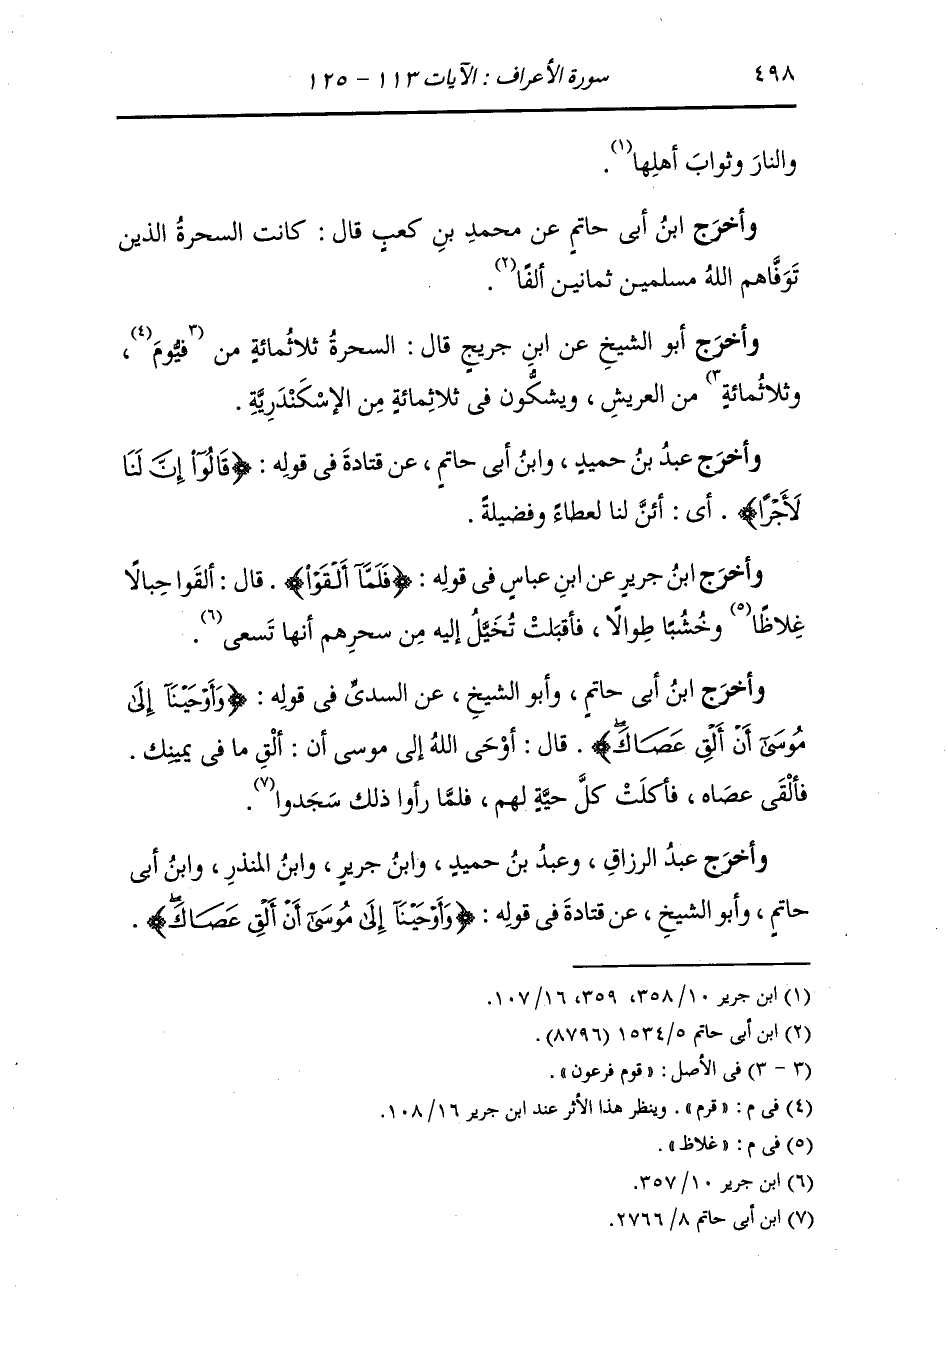 ٤٩٨
سورة الأعراف : الآيات ١١٣ - ١٢٥
والنارَ وثوابَ أهلِها(١).
وأخرَج ابنُ أبى حاتمٍ عن محمدِ بنِ كعبٍ قال : كانت السحرةُ الذين
تَوَفَّاهم اللهُ مسلمين ثمانين ألفًا(٢).
وأخرَج أبو الشيخِ عن ابنِ جريجٍ قال : السحرةُ ثلاثُمائةٍ من (٣فَيُّومَ(٤)،
وثلاثُمائةٍ٣) من العريشِ ، ويشكُّون فى ثلاثِمائةٍ مِن الإسْكَنْدَرِيَّةِ .
وأخرَج عبدُ بنُ حميدٍ ، وابنُ أبى حاتمٍ ، عن قتادةَ فى قولِه : ﴿قَالُوٓا۟ إِنَّ لَنَا
لَأَجْرًا﴾ . أى : أئنَّ لنا لعطاءً وفضيلةً .
وأخرَج ابنُ جريرٍ عن ابنِ عباسٍ فى قولِه : ﴿فَلَمَّآ أَلْقَوْا۟﴾ . قال : ألقَوا حِبالًا
غِلاظًا(٥) وخُشُبًا طِوالًا ، فأقبَلتْ تُخَيَّلُ إليه مِن سحرِهم أنها تَسعى(٦).
وأخرَج ابنُ أبى حاتمٍ ، وأبو الشيخِ ، عن السدىِّ فى قولِه : ﴿وَأَوْحَيْنَآ إِلَىٰ
مُوسَىٰٓ أَنْ أَلْقِ عَصَاكَۖ﴾ . قال : أوْحَى اللهُ إلى موسى أن : ألْقِ ما فى يمينِك .
فألْقَى عصَاه ، فأكلَتْ كلَّ حيَّةٍ لهم ، فلمَّا رأوا ذلك سَجَدوا(٧).
وأخرَج عبدُ الرزاقِ ، وعبدُ بنُ حميدٍ ، وابنُ جريرٍ ، وابنُ المنذرِ ، وابنُ أبى
حاتمٍ ، وأبو الشيخِ ، عن قتادةَ فى قولِه : ﴿وَأَوْحَيْنَآ إِلَىٰ مُوسَىٰٓ أَنْ أَلْقِ عَصَاكَۖ﴾ .
(١) ابن جرير ١٠/ ٣٥٨، ٣٥٩، ١٦/ ١٠٧.
(٢) ابن أبى حاتم ٥/ ١٥٣٤ (٨٧٩٦).
(٣ - ٣) فى الأصل : « قوم فرعون » .
(٤) فى م : « قرم » . وينظر هذا الأثر عند ابن جرير ١٦/ ١٠٨.
(٥) فى م : « غلاظ » .
(٦) ابن جرير ١٠/ ٣٥٧.
(٧) ابن أبى حاتم ٨/ ٢٧٦٦.